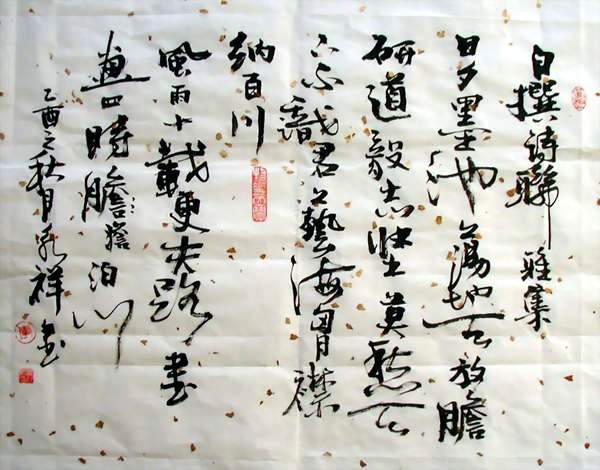 自撰詩聯 雅集
日夕墨池蕩地天放膽
研道毅志堅莫愁天
下不識君藝海胸襟
納百川
風雨十載更夫路書
畫四時膽泊川
乙酉之秋月祥書